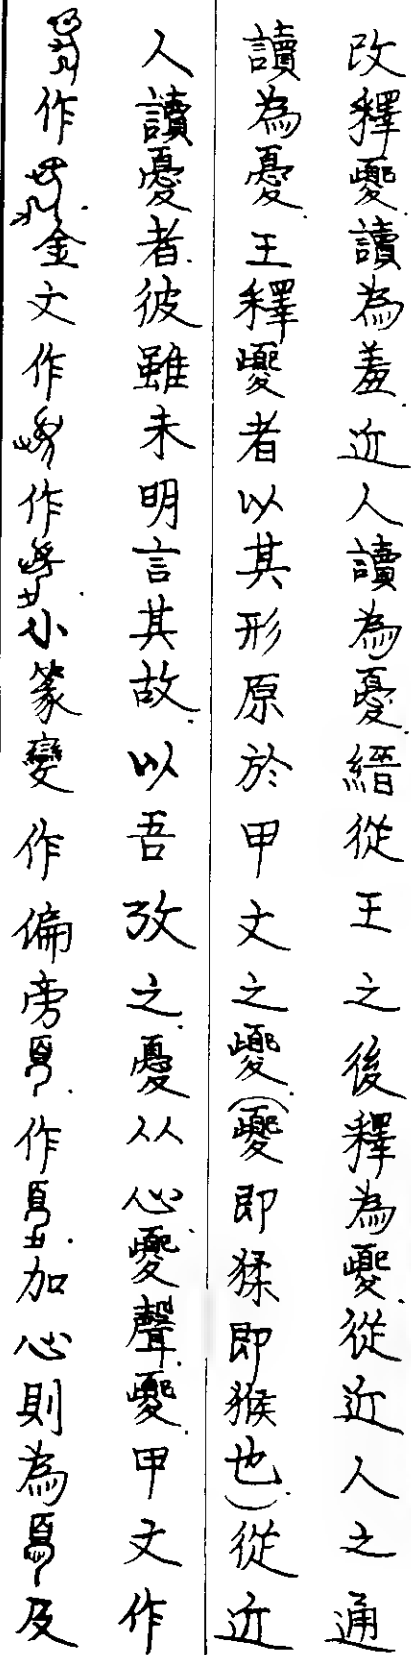 改釋夒讀為羞.近人讀為憂.縉從王之後釋為夒.從近人之通
讀為憂.王釋夒者以其形原於甲文之夒.(夒即猱即猴也).從近
人讀憂者.彼雖未明言其故.以吾攷之.憂从心.夒聲.夒.甲文作
作金文作作小篆變作偏旁.作.加心則為及